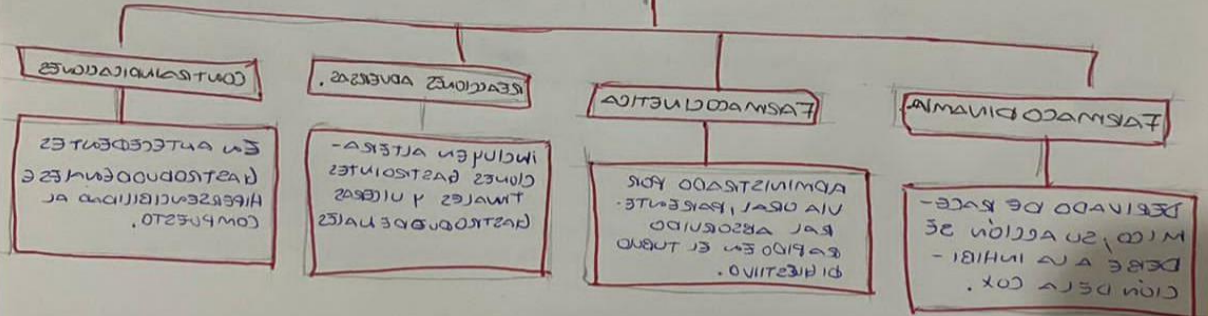 FARMACODINAMIA
DERIVADO DE RACE-
MICO, SU ACCIÓN SE
DEBE A LA INHIBI-
CIÓN DE LA COX.
FARMACOCINETICA
ADMINISTRADO POR
VIA ORAL, PARENTE-
RAL ABSORVIDO
RAPIDO EN EL TUBO
DIGESTIVO.
REACCIONES ADVERSAS.
INCLUYEN ALTERA-
CIONES GASTROINTES
TINALES Y ULCERAS
GASTRODUODENALES
CONTRAINDICACIONES
EN ANTECEDENTES
GASTRODUODENALES E
HIPERSENCIBILIDAD AL
COMPUESTO.